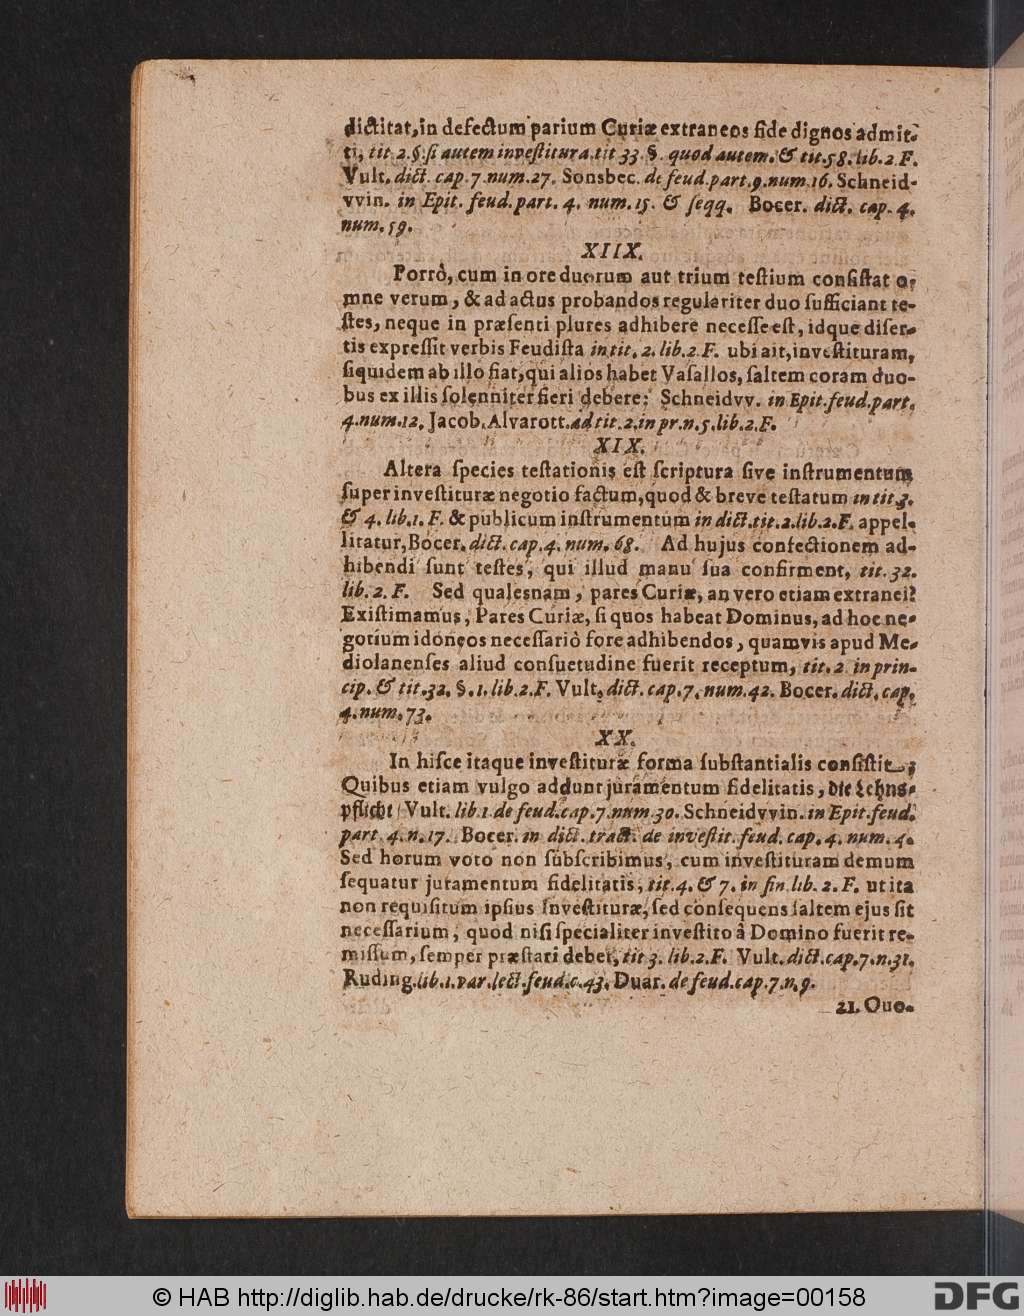 dictitat, in defectum parium Curiæ extraneos fide dignos admit-
ti, tit. 2. §. ſi autem inveſtitura. tit 33. §. quod autem. & tit. 58. lib. 2. F.
Vult. dict. cap. 7. num. 27. Sonsbec. de feud. part. 9. num. 16. Schneid-
vvin. in Epit. feud. part. 4. num. 15. & ſeqq. Bocer. dict. cap. 4.
num. 59.
XIIX.
Porrò, cum in ore duorum aut trium teſtium conſiſtat o-
mne verum, & ad actus probandos regulariter duo ſufficiant te-
ſtes, neque in præſenti plures adhibere neceſſe eſt, idque diſer-
tis expreſſit verbis Feudiſta in tit. 2. lib. 2. F. ubi ait, inveſtituram,
ſiquidem ab illo fiat, qui alios habet Vaſallos, ſaltem coram duo-
bus ex illis ſolenniter fieri debere: Schneidvv. in Epit. feud. part.
4. num. 12. Jacob. Alvarott. ad tit. 2. in pr. n. 5. lib. 2. F.
XIX.
Altera ſpecies teſtationis eſt ſcriptura ſive inſtrumentum
ſuper inveſtituræ negotio factum, quod & breve teſtatum in tit. 3.
& 4. lib. 1. F. & publicum inſtrumentum in dict. tit. 2. lib. 2. F. appel-
litatur, Bocer. dict. cap. 4. num. 68. Ad hujus confectionem ad-
hibendi ſunt teſtes, qui illud manu ſua confirment, tit. 32.
lib. 2. F. Sed qualesnam, pares Curiæ, an vero etiam extranei?
Exiſtimamus, Pares Curiæ, ſi quos habeat Dominus, ad hoc ne-
gotium idoneos neceſſariò fore adhibendos, quamvis apud Me-
diolanenſes aliud conſuetudine fuerit receptum, tit. 2. in prin-
cip. & tit. 32. §. 1. lib. 2. F. Vult. dict. cap. 7. num. 42. Bocer. dict. cap.
4. num. 73.
XX.
In hiſce itaque inveſtituræ forma ſubſtantialis conſiſtit;
Quibus etiam vulgo addunt juramentum fidelitatis, die Lehns-
pflicht Vult. lib. 1. de feud. cap. 7. num. 30. Schneidvvin. in Epit. feud.
part. 4. n. 17. Bocer. in dict. tract. de inveſtit. feud. cap. 4. num. 4.
Sed horum voto non ſubſcribimus, cum inveſtituram demum
ſequatur juramentum fidelitatis, tit. 4. & 7. in fin. lib. 2. F. ut ita
non requiſitum ipſius Inveſtituræ, ſed conſequens ſaltem ejus ſit
neceſſarium, quod niſi ſpecialiter inveſtito à Domino fuerit re-
miſſum, ſemper præſtari debet, tit 3. lib. 2. F. Vult. dict. cap. 7. n. 31.
Ruding. lib. 1. var. lect. feud. c. 43. Duar. de feud. cap. 7. n. 9.
21. Quo-
© HAB http://diglib.hab.de/drucke/rk-86/start.htm?image=00158
DFG